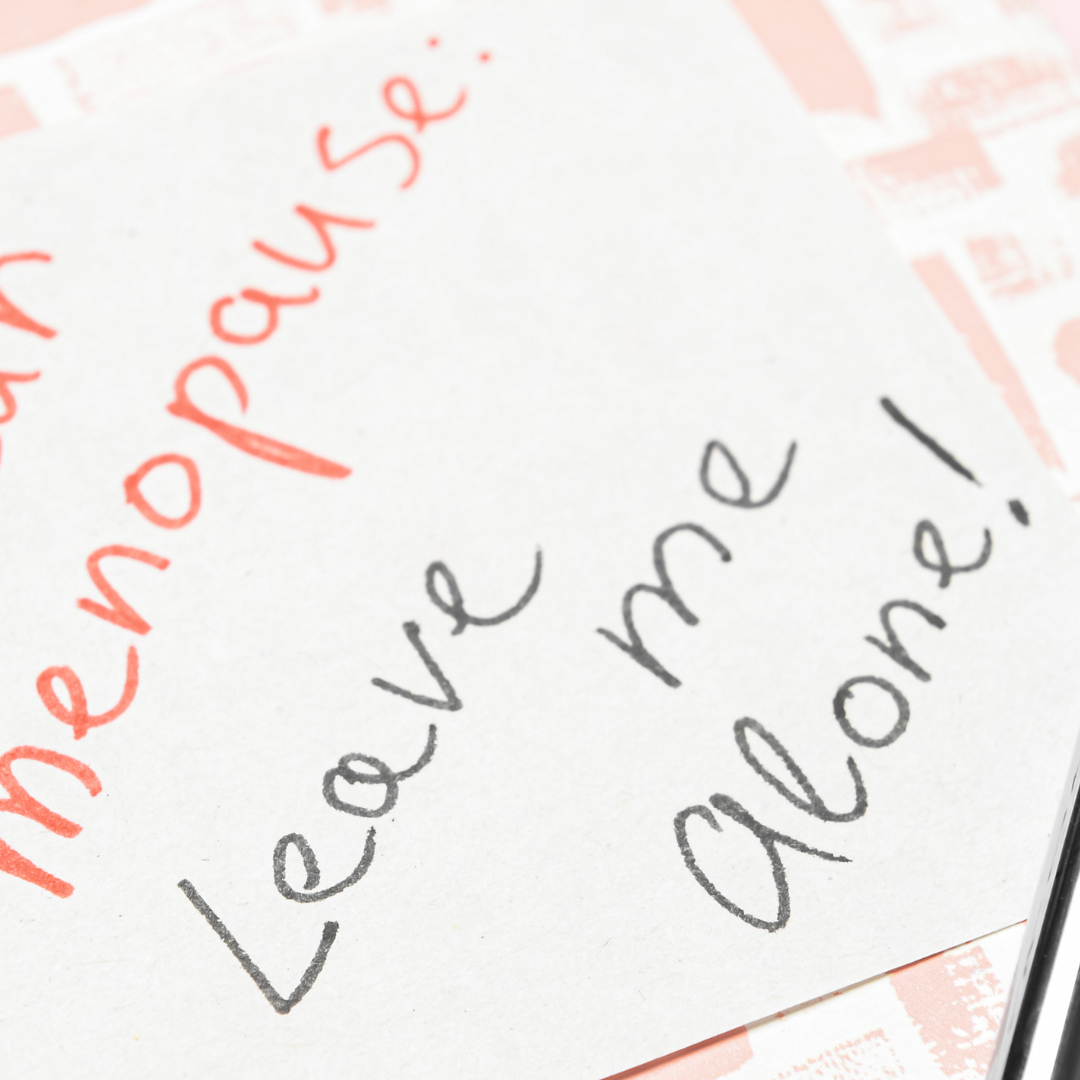 menopause:
Leave me
alone!